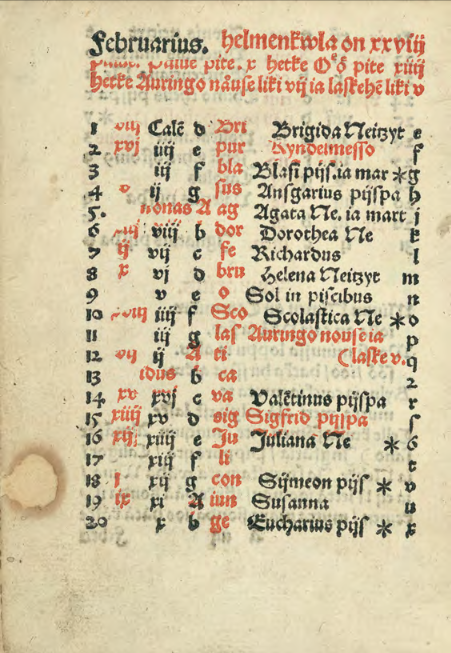 Februarius. helmenkwla on xxviij
pite. x hetke Oeō pite xiiij
hetke Auringo nåuse liki vij ia laskehē liki v
1 viij Calē d Bri Brigida Neitzyt e
2 xvj iiij e pur Kyndelmesso f
3 iij f bla Blasi pijs. ia mar * g
4 v ij g sus Ansgarius pijspa h
5. nonas A ag Agata Ne. ia mart i
6 viij b dor Dorothea Ne k
7 ij vij c fe Richardus l
8 x vj d bru Helena Neitzyt m
9 v e o Sol in piscibus n
10 iiij f Sco Scolastica Ne * o
11 iij g las Auringo nouse ia p
12 vij ij A ti (laske v. q
13 idus b ca 2
14 xv xvj c va Valētinus pijspa r
15 xiiij xv d sig Sigfrid pijspa s
16 xij xiiij e Ju Juliana Ne * 6
17 xiij f li t
18 i xij g con Sijmeon pijs * v
19 ix xi A iun Susanna u
20 x b ge Eucharius pijs * x